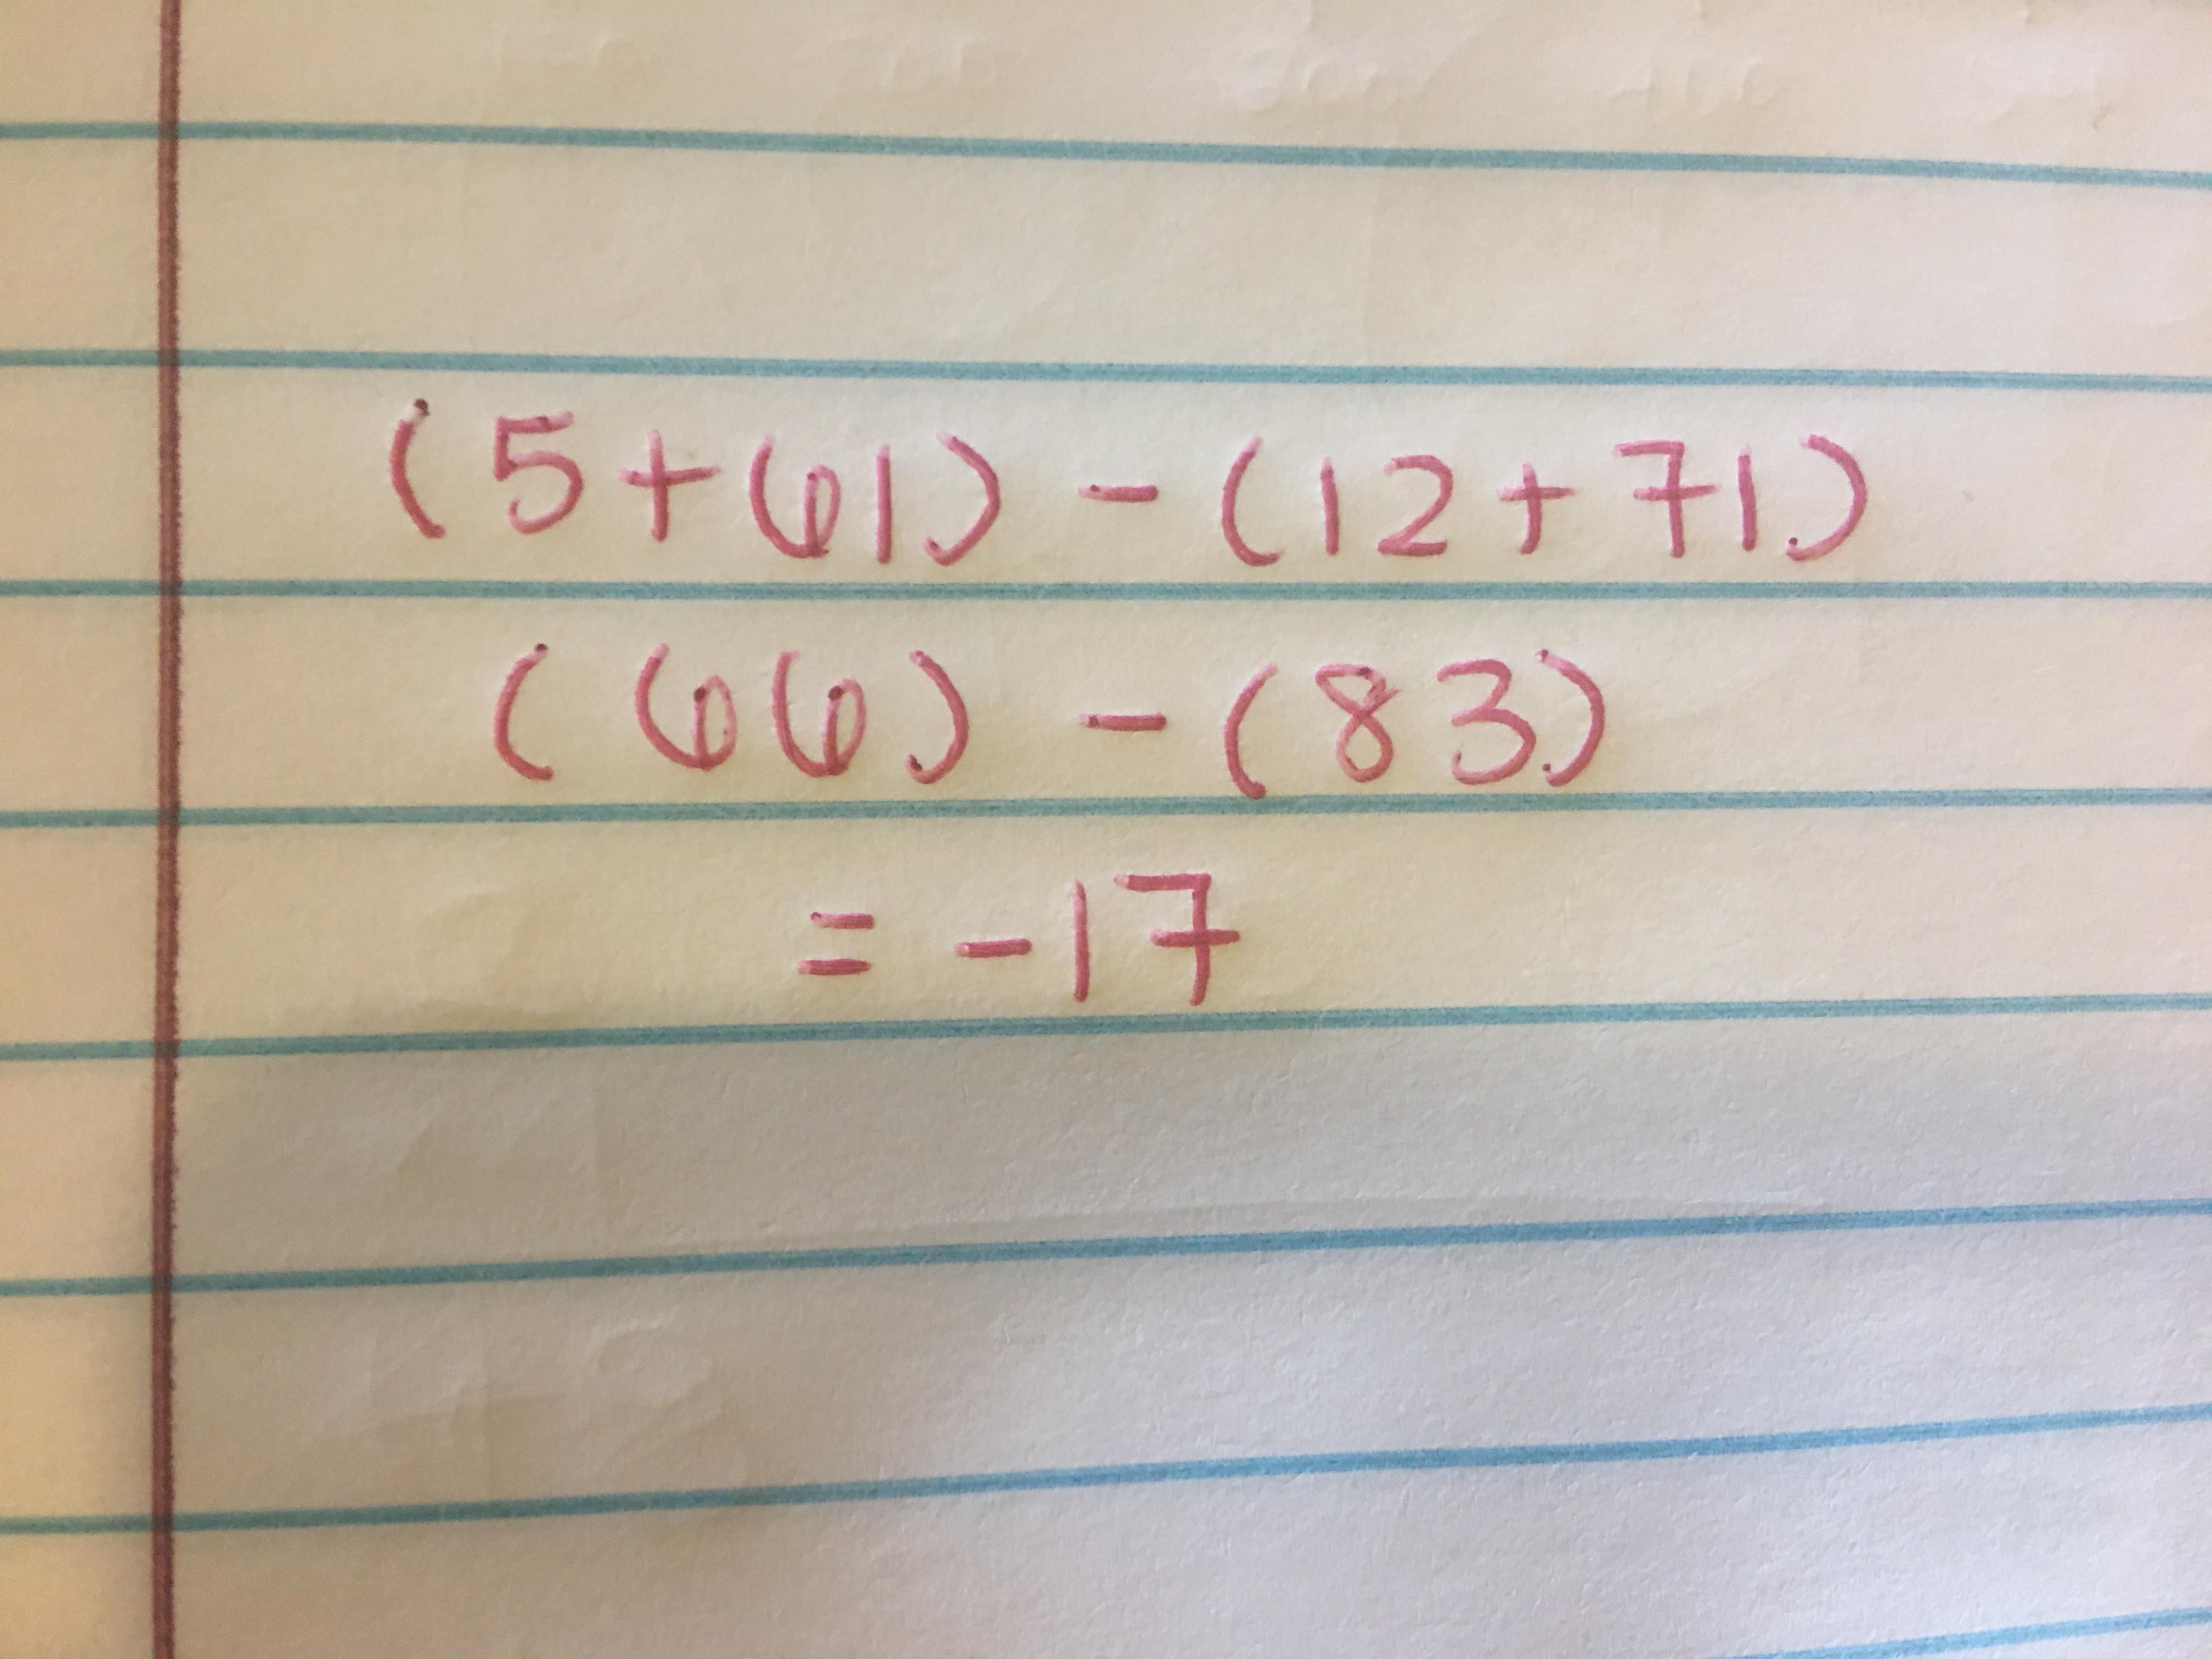 (5+61) - (12+71)
(66) - (83)
= -17